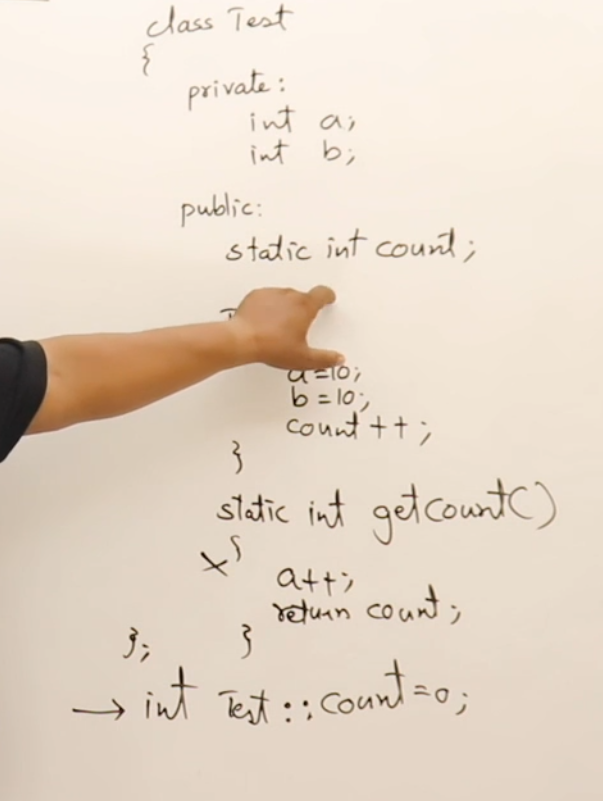 class Test
{
private:
int a;
int b;
public:
static int count;
a=10;
b=10;
count++;
}
static int getcount()
x {
a++;
return count;
}
};
→ int Test::count=0;